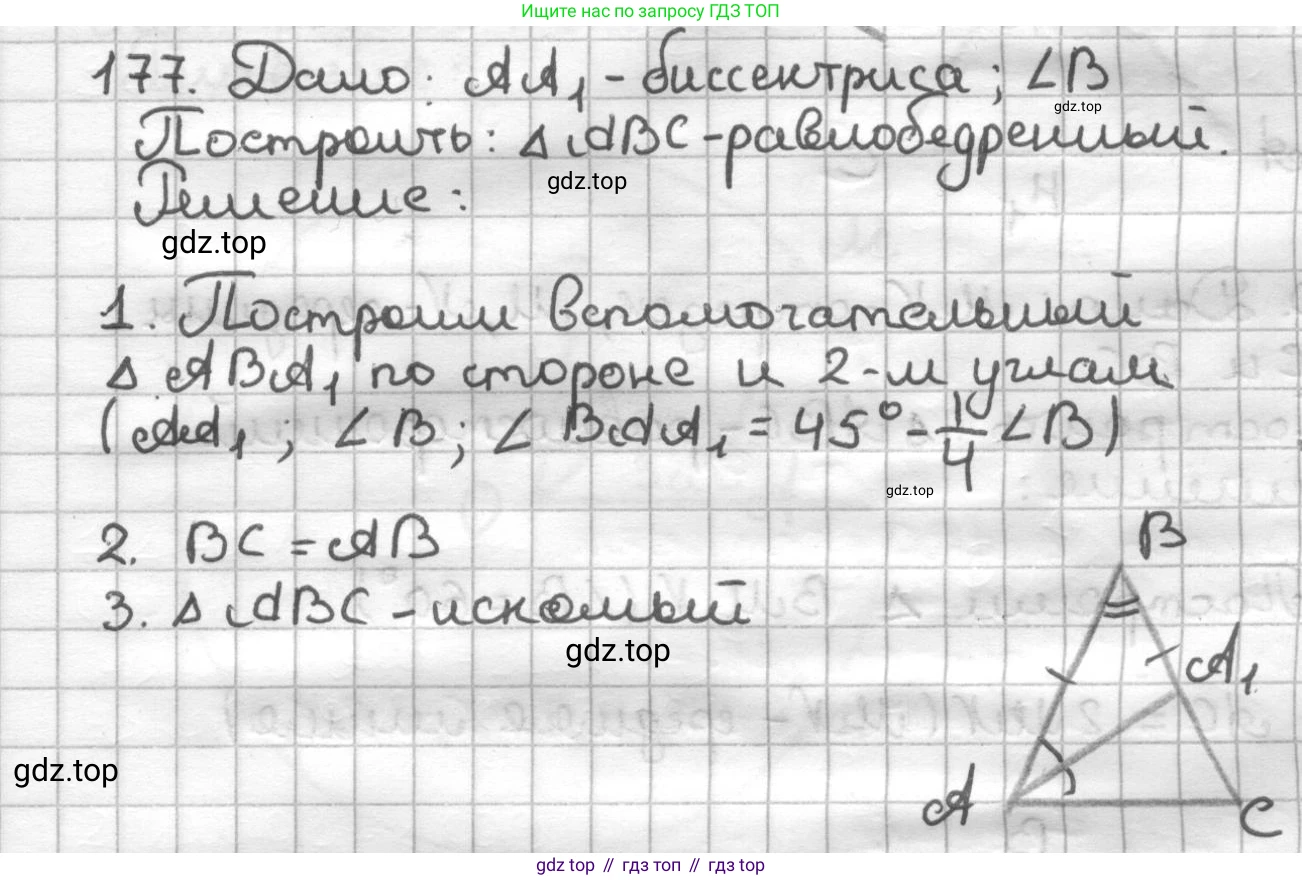 Ищите нас по запросу ГДЗ ТОП
177. Дано: AA₁ - биссектриса; ∠B
gdz.top
Построить: △ABC - равнобедренный.
gdz.top
Решение:
gdz.top
1. Построим вспомогательный
△ABA₁ по стороне и 2-м углам
(AA₁; ∠B; ∠BAA₁ = 45° - 1/4 ∠B)
gdz.top
2. BC = AB
3. △ABC - искомый
gdz.top
B
A₁
A
C
gdz.top
gdz top // гдз топ // gdz top